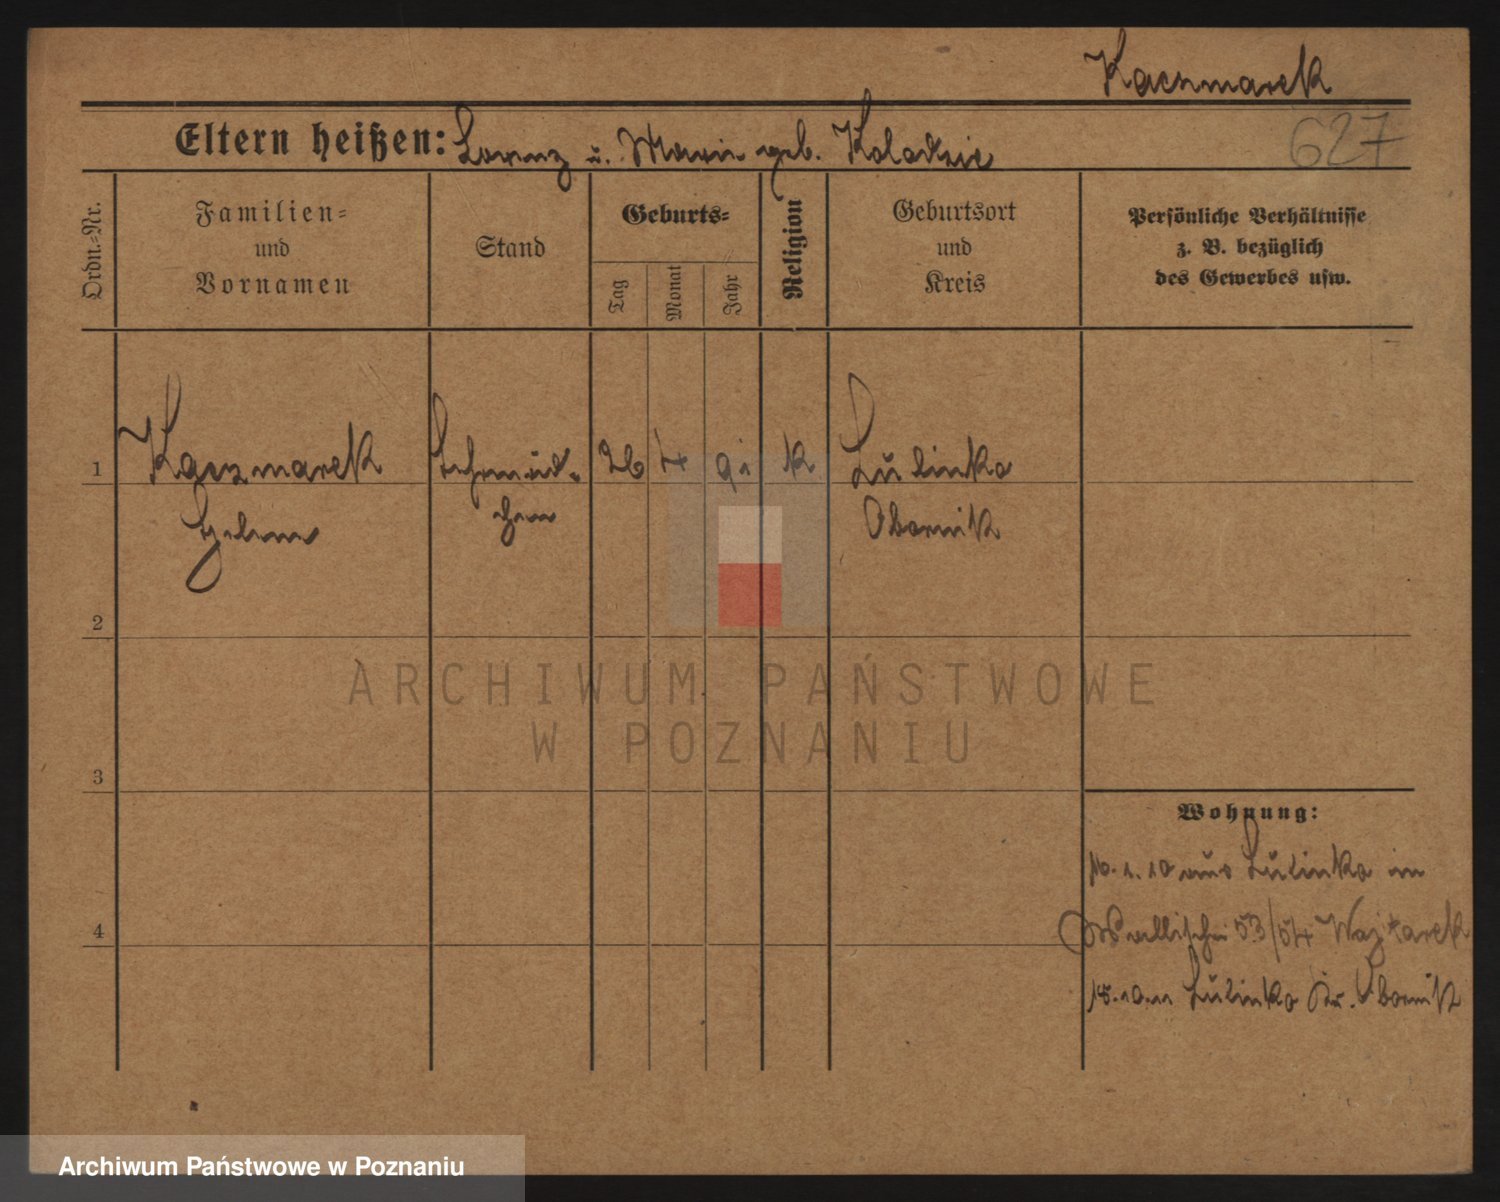 Kaczmarek
Eltern heißen: Lorenz u. Marie geb.
627
Ordn.-Nr.
Familien-
und
Vornamen
Stand
Geburts-
Tag
Monat
Jahr
Religion
Geburtsort
und
Kreis
Persönliche Verhältnisse
z. B. bezüglich
des Gewerbes usw.
1
Kaczmarek
Helene
26 4 91 k
Lulinko
Obornik
2
3
4
Wohnung:
10 aus Lulinko in
Wallischei 53/54
Lulinko Kr. Obornik
ARCHIWUM PAŃSTWOWE
W POZNANIU
Archiwum Państwowe w Poznaniu